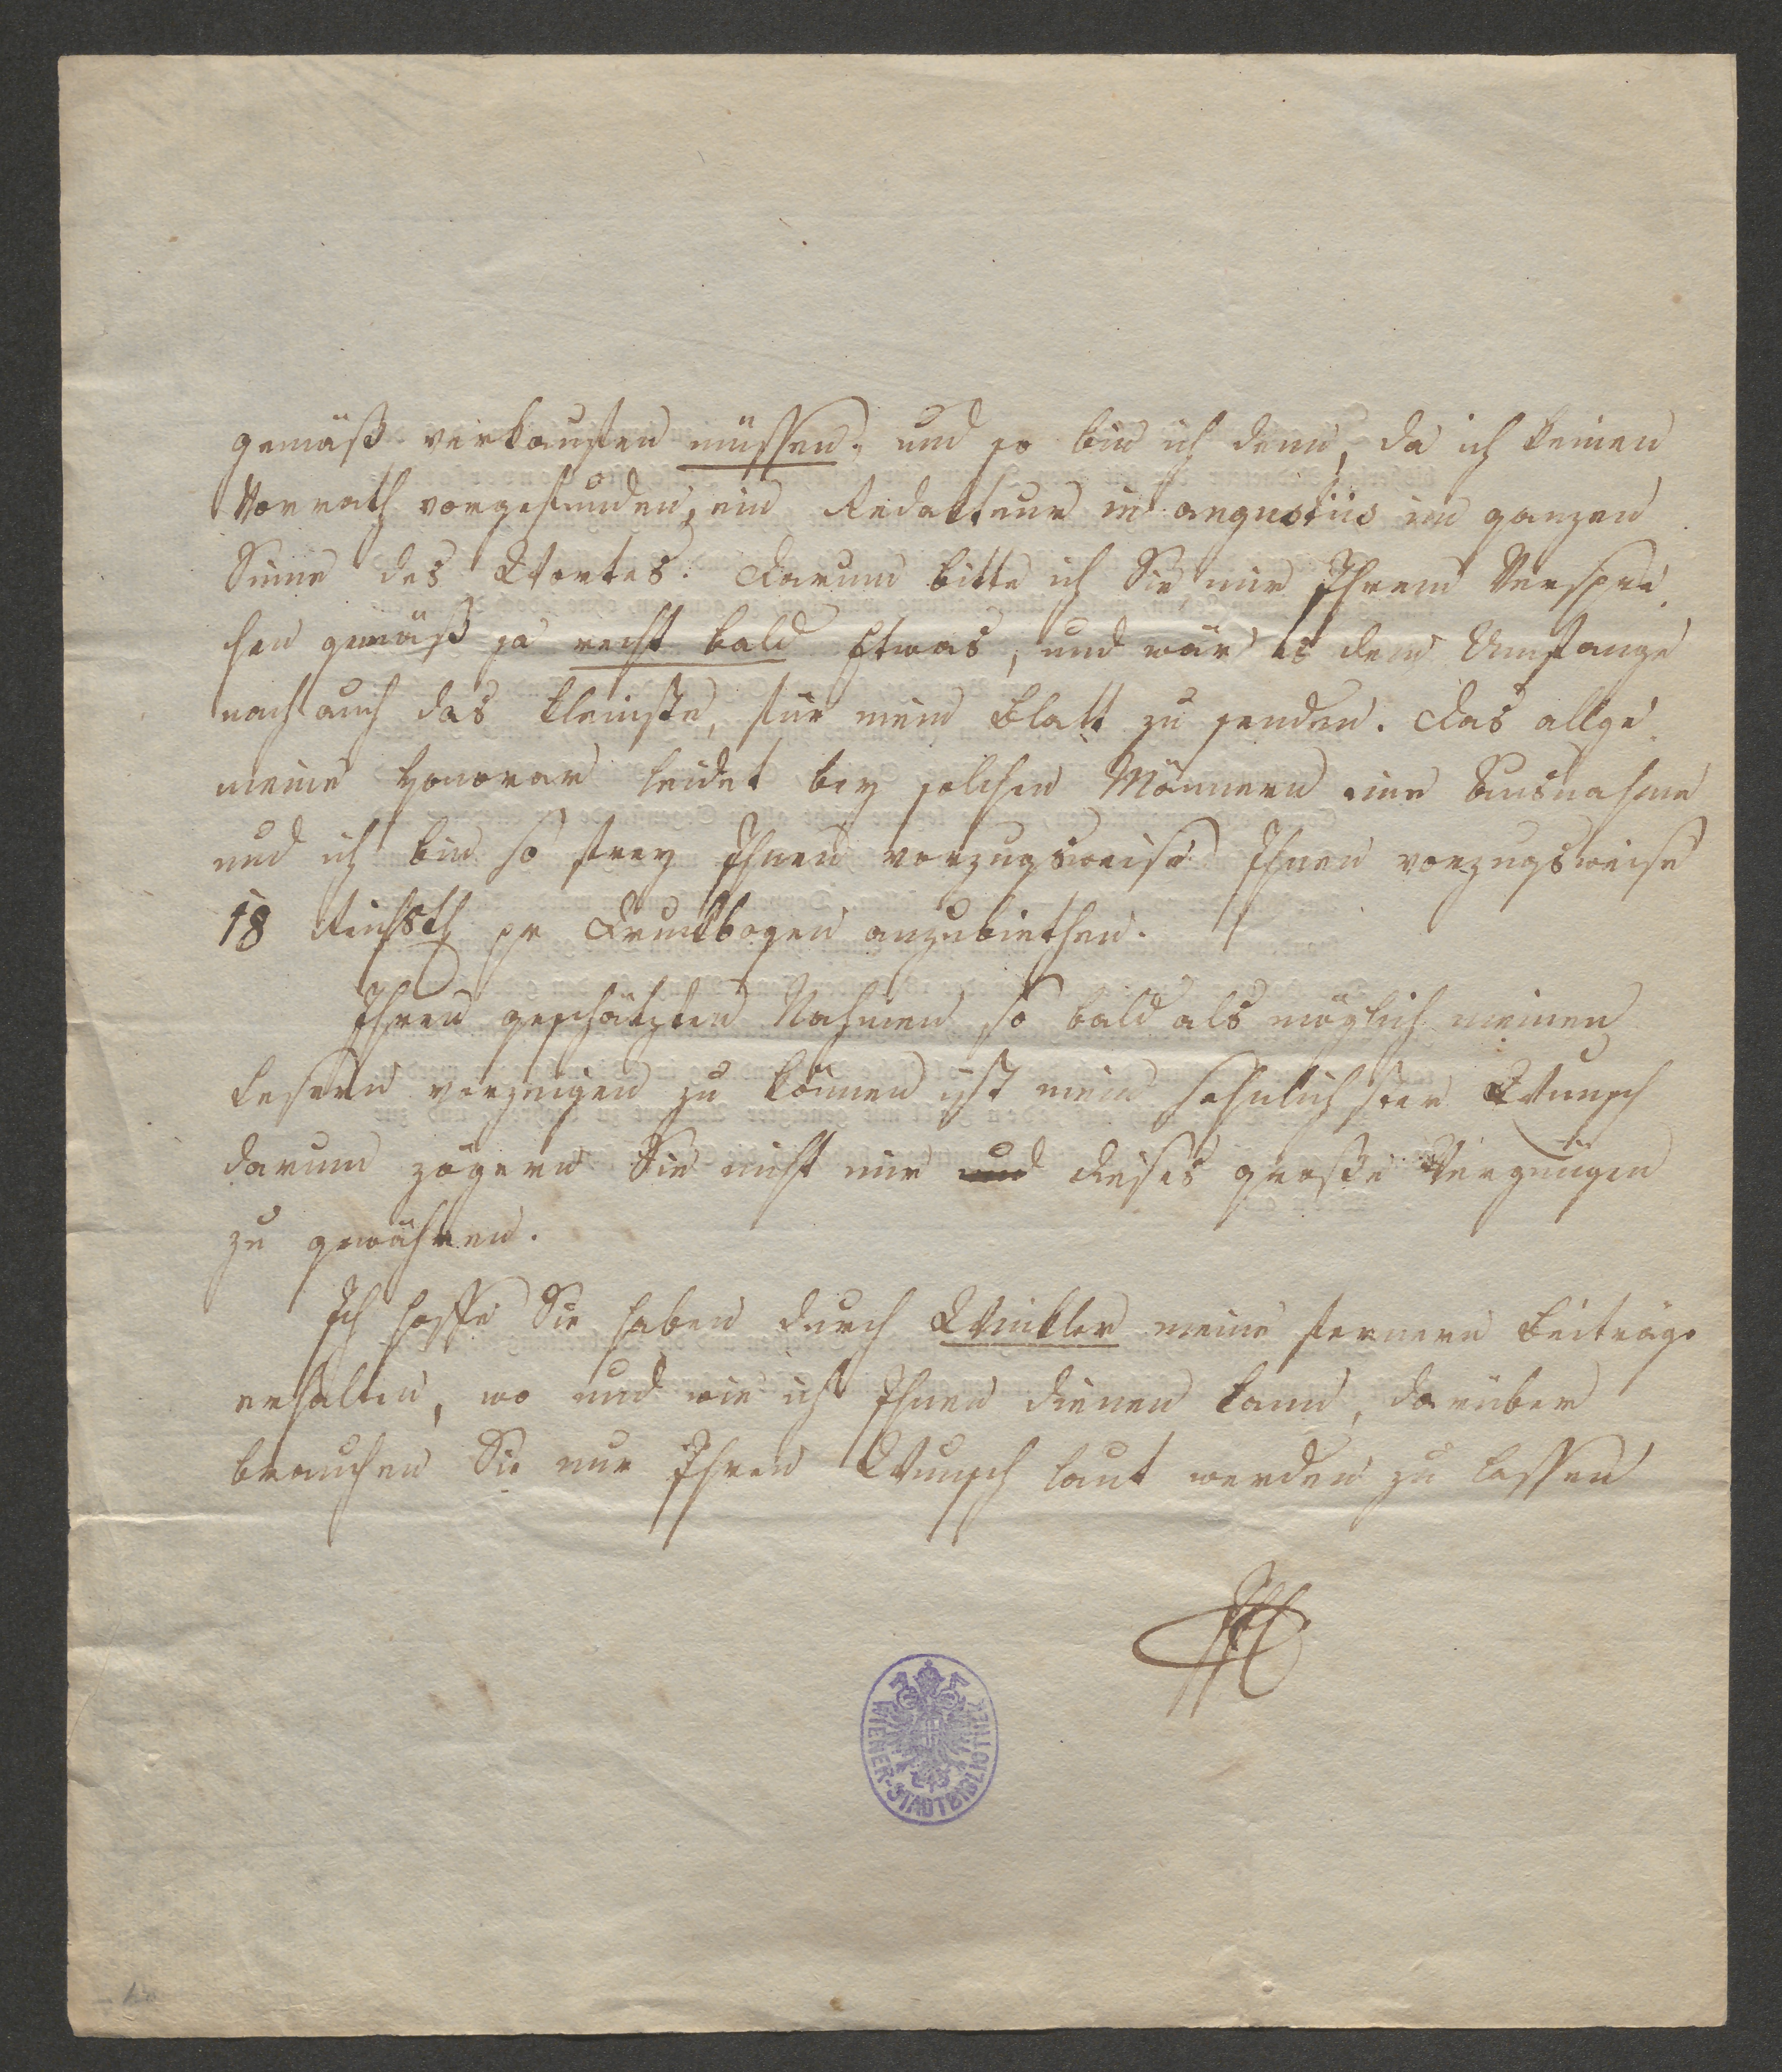 gemäß verkaufen müssen, und so bin ich denn, da ich keinen
Vorrath vorgefunden, ein Redakteur in angustiis im ganzen
Sinne des Wortes. Darum bitte ich Sie mir Ihrem Verspre
chen gemäß ja recht bald Etwas, und wär es dem Umfange
nach auch das kleinste, für mein Blatt zu senden. Das allge
meine Honorar leidet bey solchen Männern eine Ausnahme
und ich bin so frey Ihnen vorzugsweise Ihnen vorzugsweise
18 Reichsth pr Druckbogen anzubiethen.
Ihren geschätzten Nahmen so bald als möglich meinen
Lesern vorzeigen zu können ist mein sehnlichster Wunsch
darum zögern Sie nicht mir und dieses große Vergnügen
zu gewähren.
Ich hoffe Sie haben durch Winkler meine fernern Beiträge
erhalten, wo und wie ich Ihnen dienen kann, darüber
brauchen Sie nur Ihren Wunsch laut werden zu lassen
WIENER-STADTBIBLIOTHEK